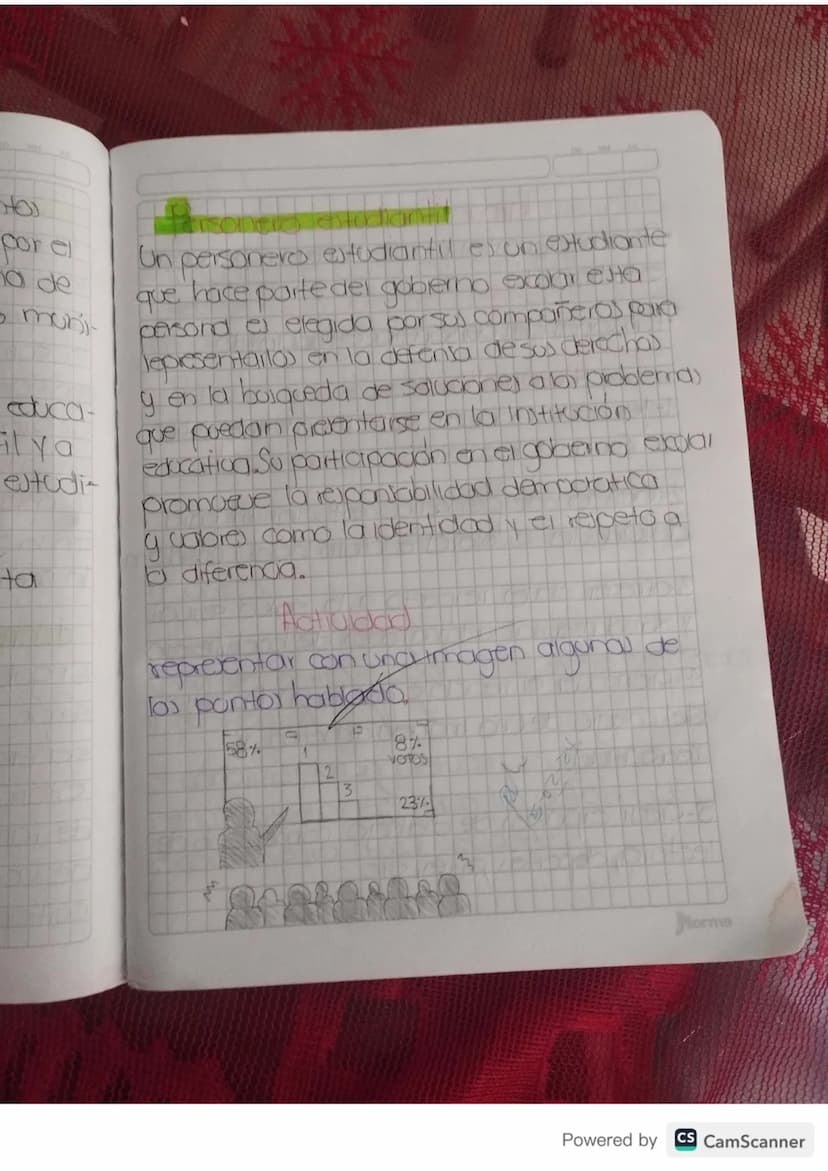 tos
por el
ia de
o muni-
educa-
il y a
estudi-
ta
Personero estudiantil
Un personero estudiantil es un estudiante
que hace parte del gobierno escolar esta
persona es elegida por sus compañeros para
representarlos en la defensa de sus derechos
y en la busqueda de soluciones a los problemas
que puedan presentarse en la institución
educativa. Su participación en el gobierno escolar
promueve la responsabilidad democratica
y valores como la identidad y el respeto a
la diferencia.
Actividad
representar con una imagen algunas de
los puntos hablado.
58%
1
8%
votos
2
3
23%
Norma
Powered by CS CamScanner